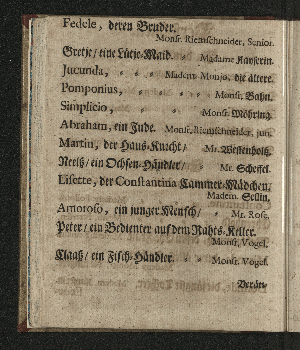 Fedele, deren Bruder.
Monsr. Riemschneider, Senior.
Gretje/ eine Lütje-Maid  Madame Kayserin.
Jucunda, Madem. Monjo, die ältere.
Pomponius, Monsr. Bahn.
Simplicio, Monsr. Möhring.
Abraham, ein Jude. Monsr. Riemschneider, jun.
Martin, der Haus-Knecht/ Mr. Westenholz.
Neels/ ein Ochsen-Händler/ Mr. Scheffel.
Lisette, der Constantina Cammer-Mädchen/
Madem. Sellin.
Amoroso, ein junger Mensch/ Mr. Rose.
Peter/ ein Bedienter auf dem Rahts-Keller.
Monsr. Vogel.
Claaß/ ein Fisch-Händler. Monsr. Vogel.
Verän-